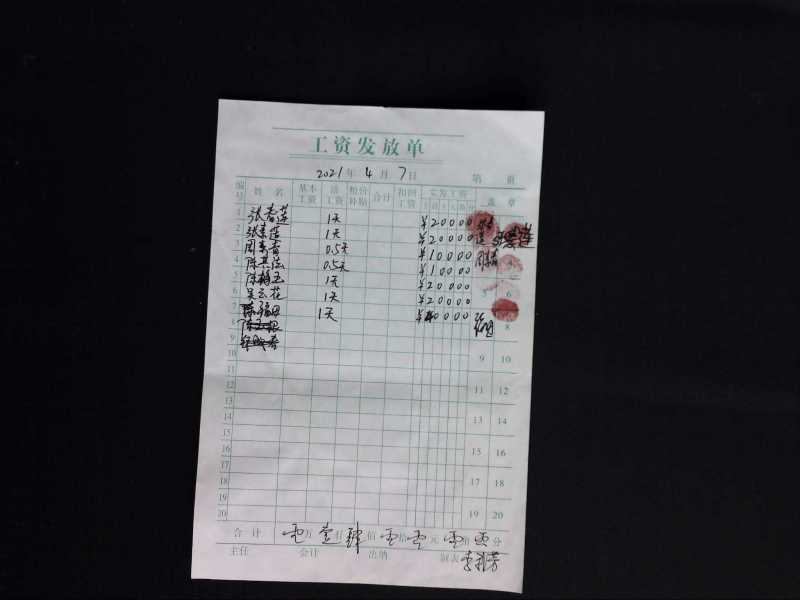 工资发放单
2021年4月7日 第 页
编号 姓名 基本工资 活工资 粮价补贴 合计 扣回工资 实发工资 盖章
1 张春莲 1天 ¥20000
2 张素莲 1天 ¥20000
3 周素香 0.5天 ¥10000
4 陈其法 0.5天 ¥10000
5 1天 ¥20000 5 6
6 吴云花 1天 ¥20000
7 1天 8
8
9 9 10
10
11 11 12
12
13 13 14
14
15 15 16
16
17 17 18
18
19 19 20
20
合计 零万壹仟肆佰零拾零元零角零分
主任 会计 出纳 制表